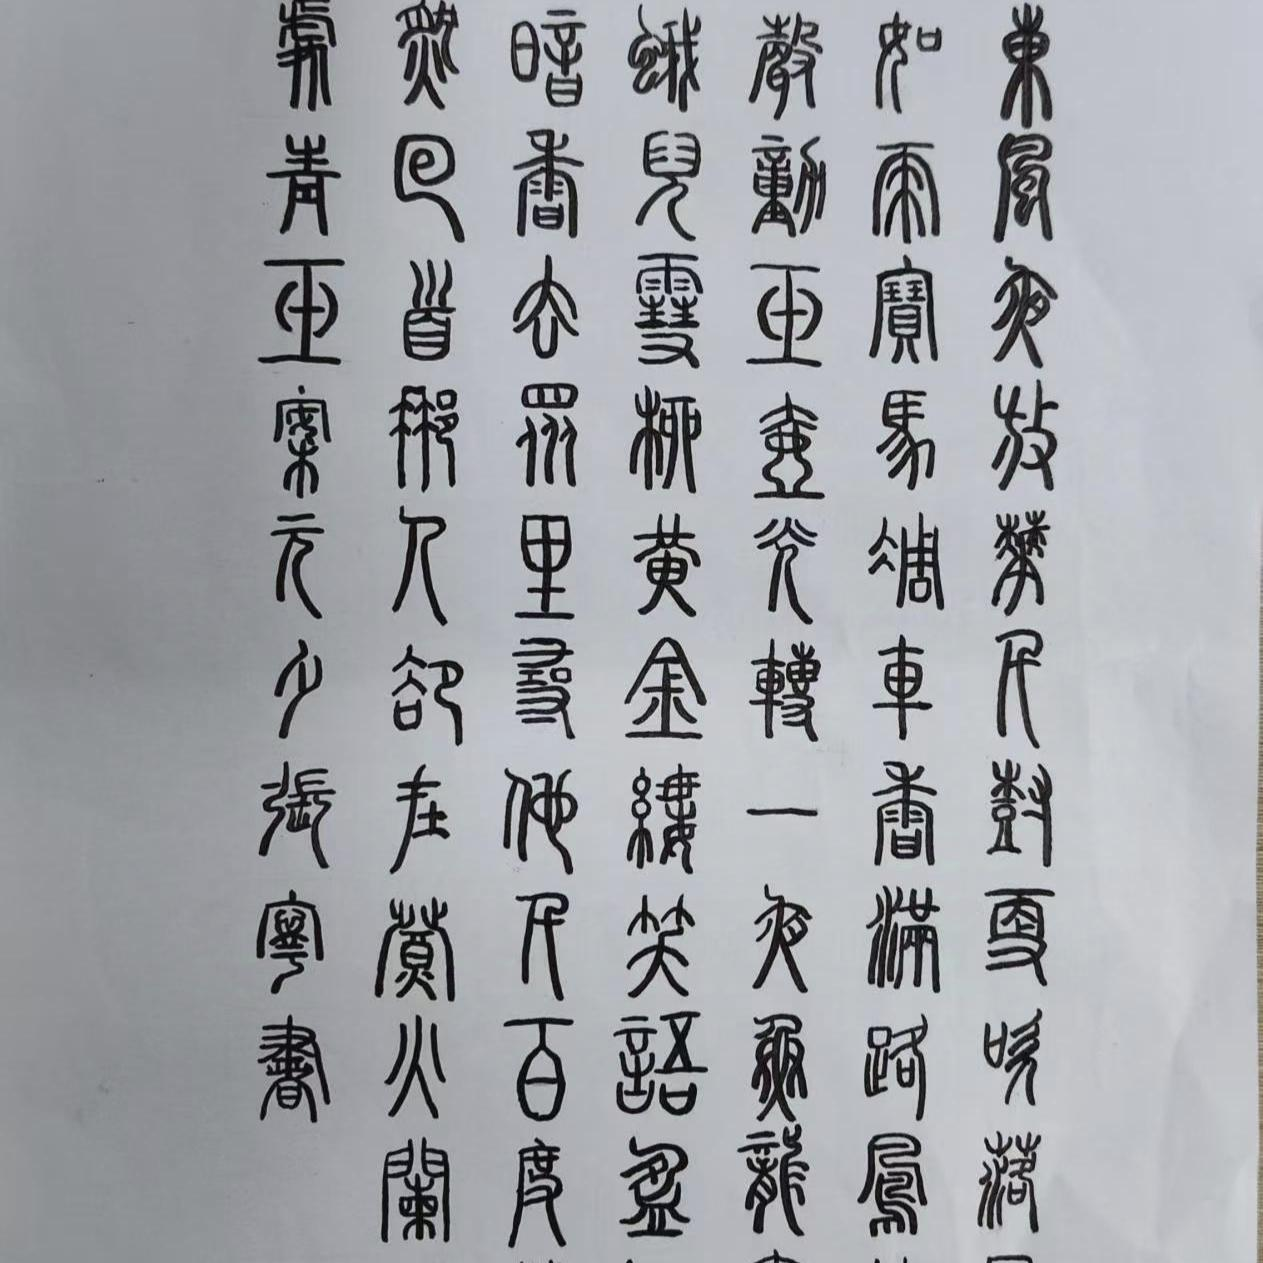 東風夜放華千尌更吹落
如雨寶馬凋車香滿路鳳
聲動玉壺光轉一夜魚龍
蛾兒雪柳黃金縷笑語盈
暗香去眾里尋他千百度
然回首那人卻在燈火闌
處青玉案元夕張寧書